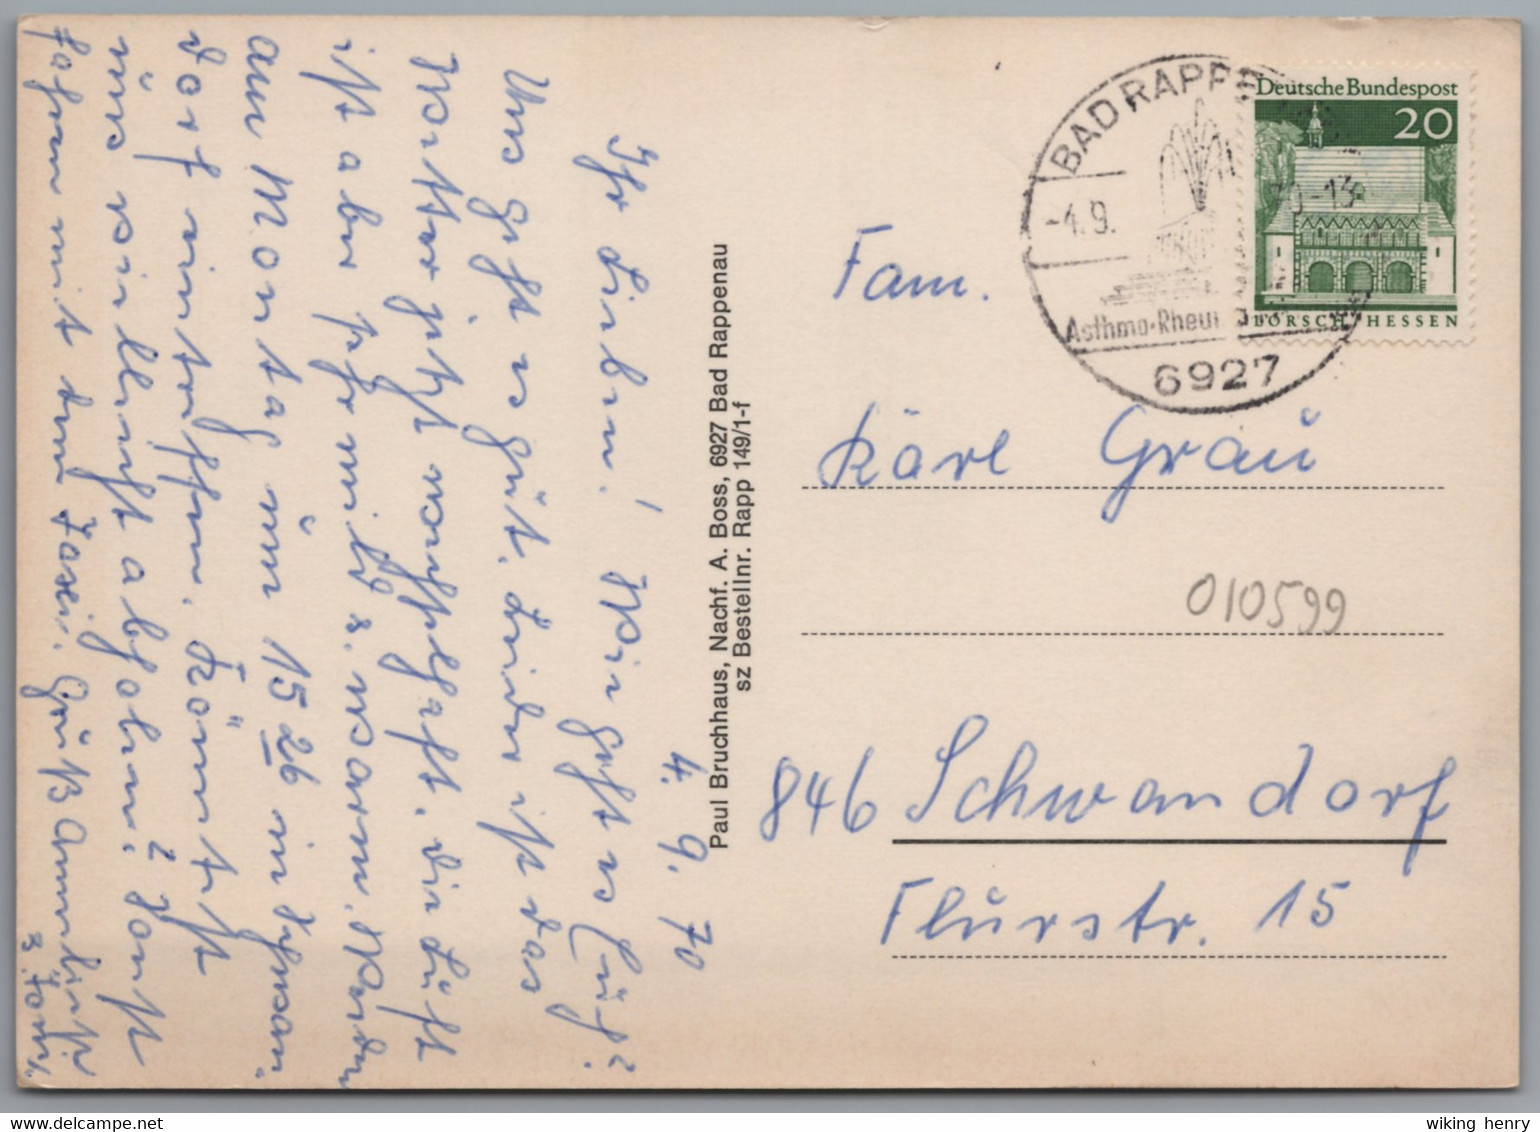 4. 9. 70
Ihr Lieben! Wie geht es Euch?
Uns geht es gut. Leider ist das
Wetter jetzt wechselhaft. Die Luft
ist aber sehr mild u. warm. Werden
am Montag um 15 26 in Schwan-
dorf eintreffen. Könnt Ihr
uns vielleicht abholen? Sonst
fahren wir mit dem Taxi. Gruß Annelies
u. Toni
Paul Bruchhaus, Nachf. A. Boss, 6927 Bad Rappenau
sz Bestellnr. Rapp 149/1-f
BAD RAPPE
-4.9.
70-13
Asthma-Rheu
6927
Deutsche Bundespost
20
LORSCH/HESSEN
Fam.
Karl Grau
010599
846 Schwandorf
Flurstr. 15
wiking henry